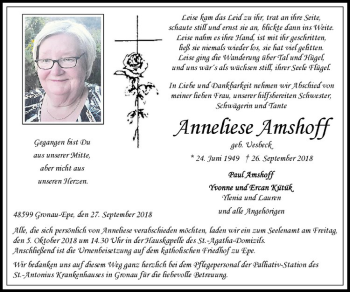 Leise kam das Leid zu ihr, trat an ihre Seite,
schaute still und ernst sie an, blickte dann ins Weite.
Leise nahm es ihre Hand, ist mit ihr geschritten,
ließ sie niemals wieder los, sie hat viel gelitten.
Leise ging die Wanderung über Tal und Hügel,
und uns war´s als wüchsen still, ihrer Seele Flügel.
In Liebe und Dankbarkeit nehmen wir Abschied von
meiner lieben Frau, unserer hilfsbereiten Schwester,
Schwägerin und Tante
Anneliese Amshoff
geb. Uesbeck
* 24. Juni 1949 † 26. September 2018
Gegangen bist Du
aus unserer Mitte,
aber nicht aus
unseren Herzen.
Paul Amshoff
Yvonne und Ercan Kütük
Ylenia und Lauren
und alle Angehörigen
48599 Gronau-Epe, den 27. September 2018
Alle, die sich persönlich von Anneliese verabschieden möchten, laden wir ein, zum Seelenamt am Freitag,
den 5. Oktober 2018 um 14.30 Uhr in der Hauskapelle des St.-Agatha-Domizils.
Anschließend ist die Urnenbeisetzung auf dem katholischen Friedhof zu Epe.
Wir bedanken uns auf diesem Weg ganz herzlich bei dem Pflegepersonal der Palliativ-Station des
St.-Antonius Krankenhauses in Gronau für die liebevolle Betreuung.